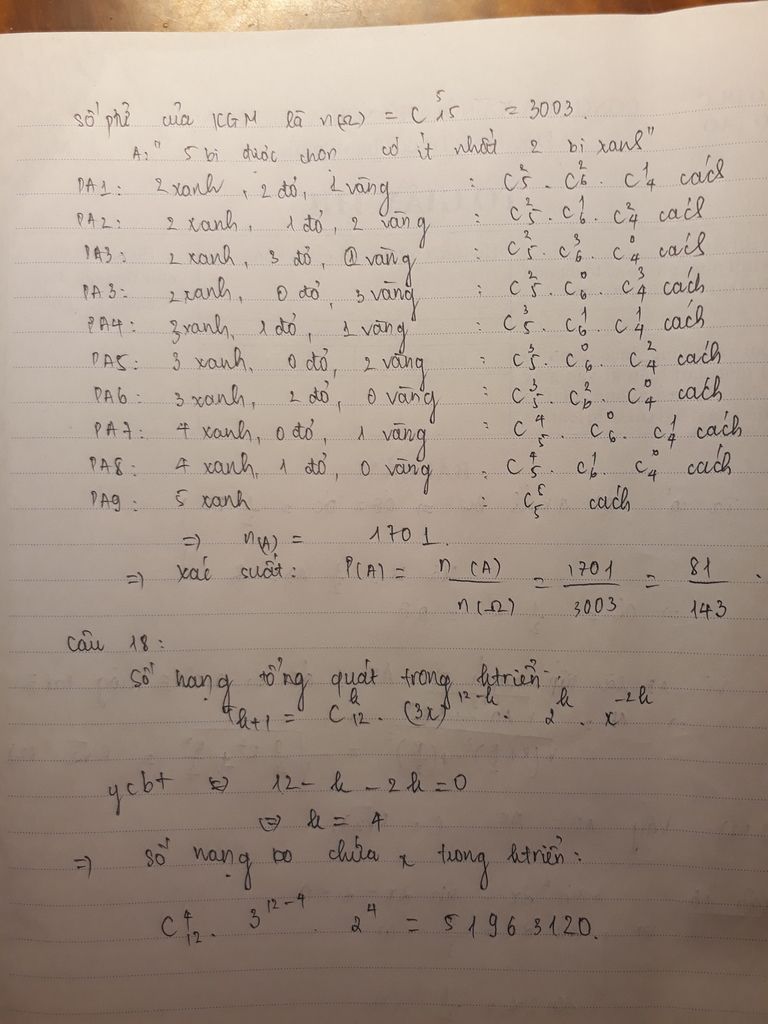 số ptử của KGM là n(Ω) = C⁵₁₅ = 3003.
A: " 5 bi được chọn có ít nhất 2 bi xanh"
PA1: 2 xanh, 2 đỏ, 1 vàng : C²₅ . C²₆ . C¹₄ cách
PA2: 2 xanh, 1 đỏ, 2 vàng : C²₅ . C¹₆ . C²₄ cách
PA3: 2 xanh, 3 đỏ, 0 vàng : C²₅ . C³₆ . C⁰₄ cách
PA3: 2 xanh, 0 đỏ, 3 vàng : C²₅ . C⁰₆ . C³₄ cách
PA4: 3 xanh, 1 đỏ, 1 vàng : C³₅ . C¹₆ . C¹₄ cách
PA5: 3 xanh, 0 đỏ, 2 vàng : C³₅ . C⁰₆ . C²₄ cách
PA6: 3 xanh, 2 đỏ, 0 vàng : C³₅ . C²₆ . C⁰₄ cách
PA7: 4 xanh, 0 đỏ, 1 vàng : C⁴₅ . C⁰₆ . C¹₄ cách
PA8: 4 xanh, 1 đỏ, 0 vàng : C⁴₅ . C¹₆ . C⁰₄ cách
PA9: 5 xanh : C⁵₅ cách
=> n(A) = 1701.
=> xác suất: P(A) = n(A)/n(Ω) = 1701/3003 = 81/143.
Câu 18:
Số hạng tổng quát trong ktriển:
Tₖ₊₁ = Cᵏ₁₂ . (3x)¹²⁻ᵏ . 2ᵏ . x⁻²ᵏ
ycbt <=> 12 - k - 2k = 0
<=> k = 4
=> số hạng ko chứa x trong ktriển:
C⁴₁₂ . 3¹²⁻⁴ . 2⁴ = 51963120.